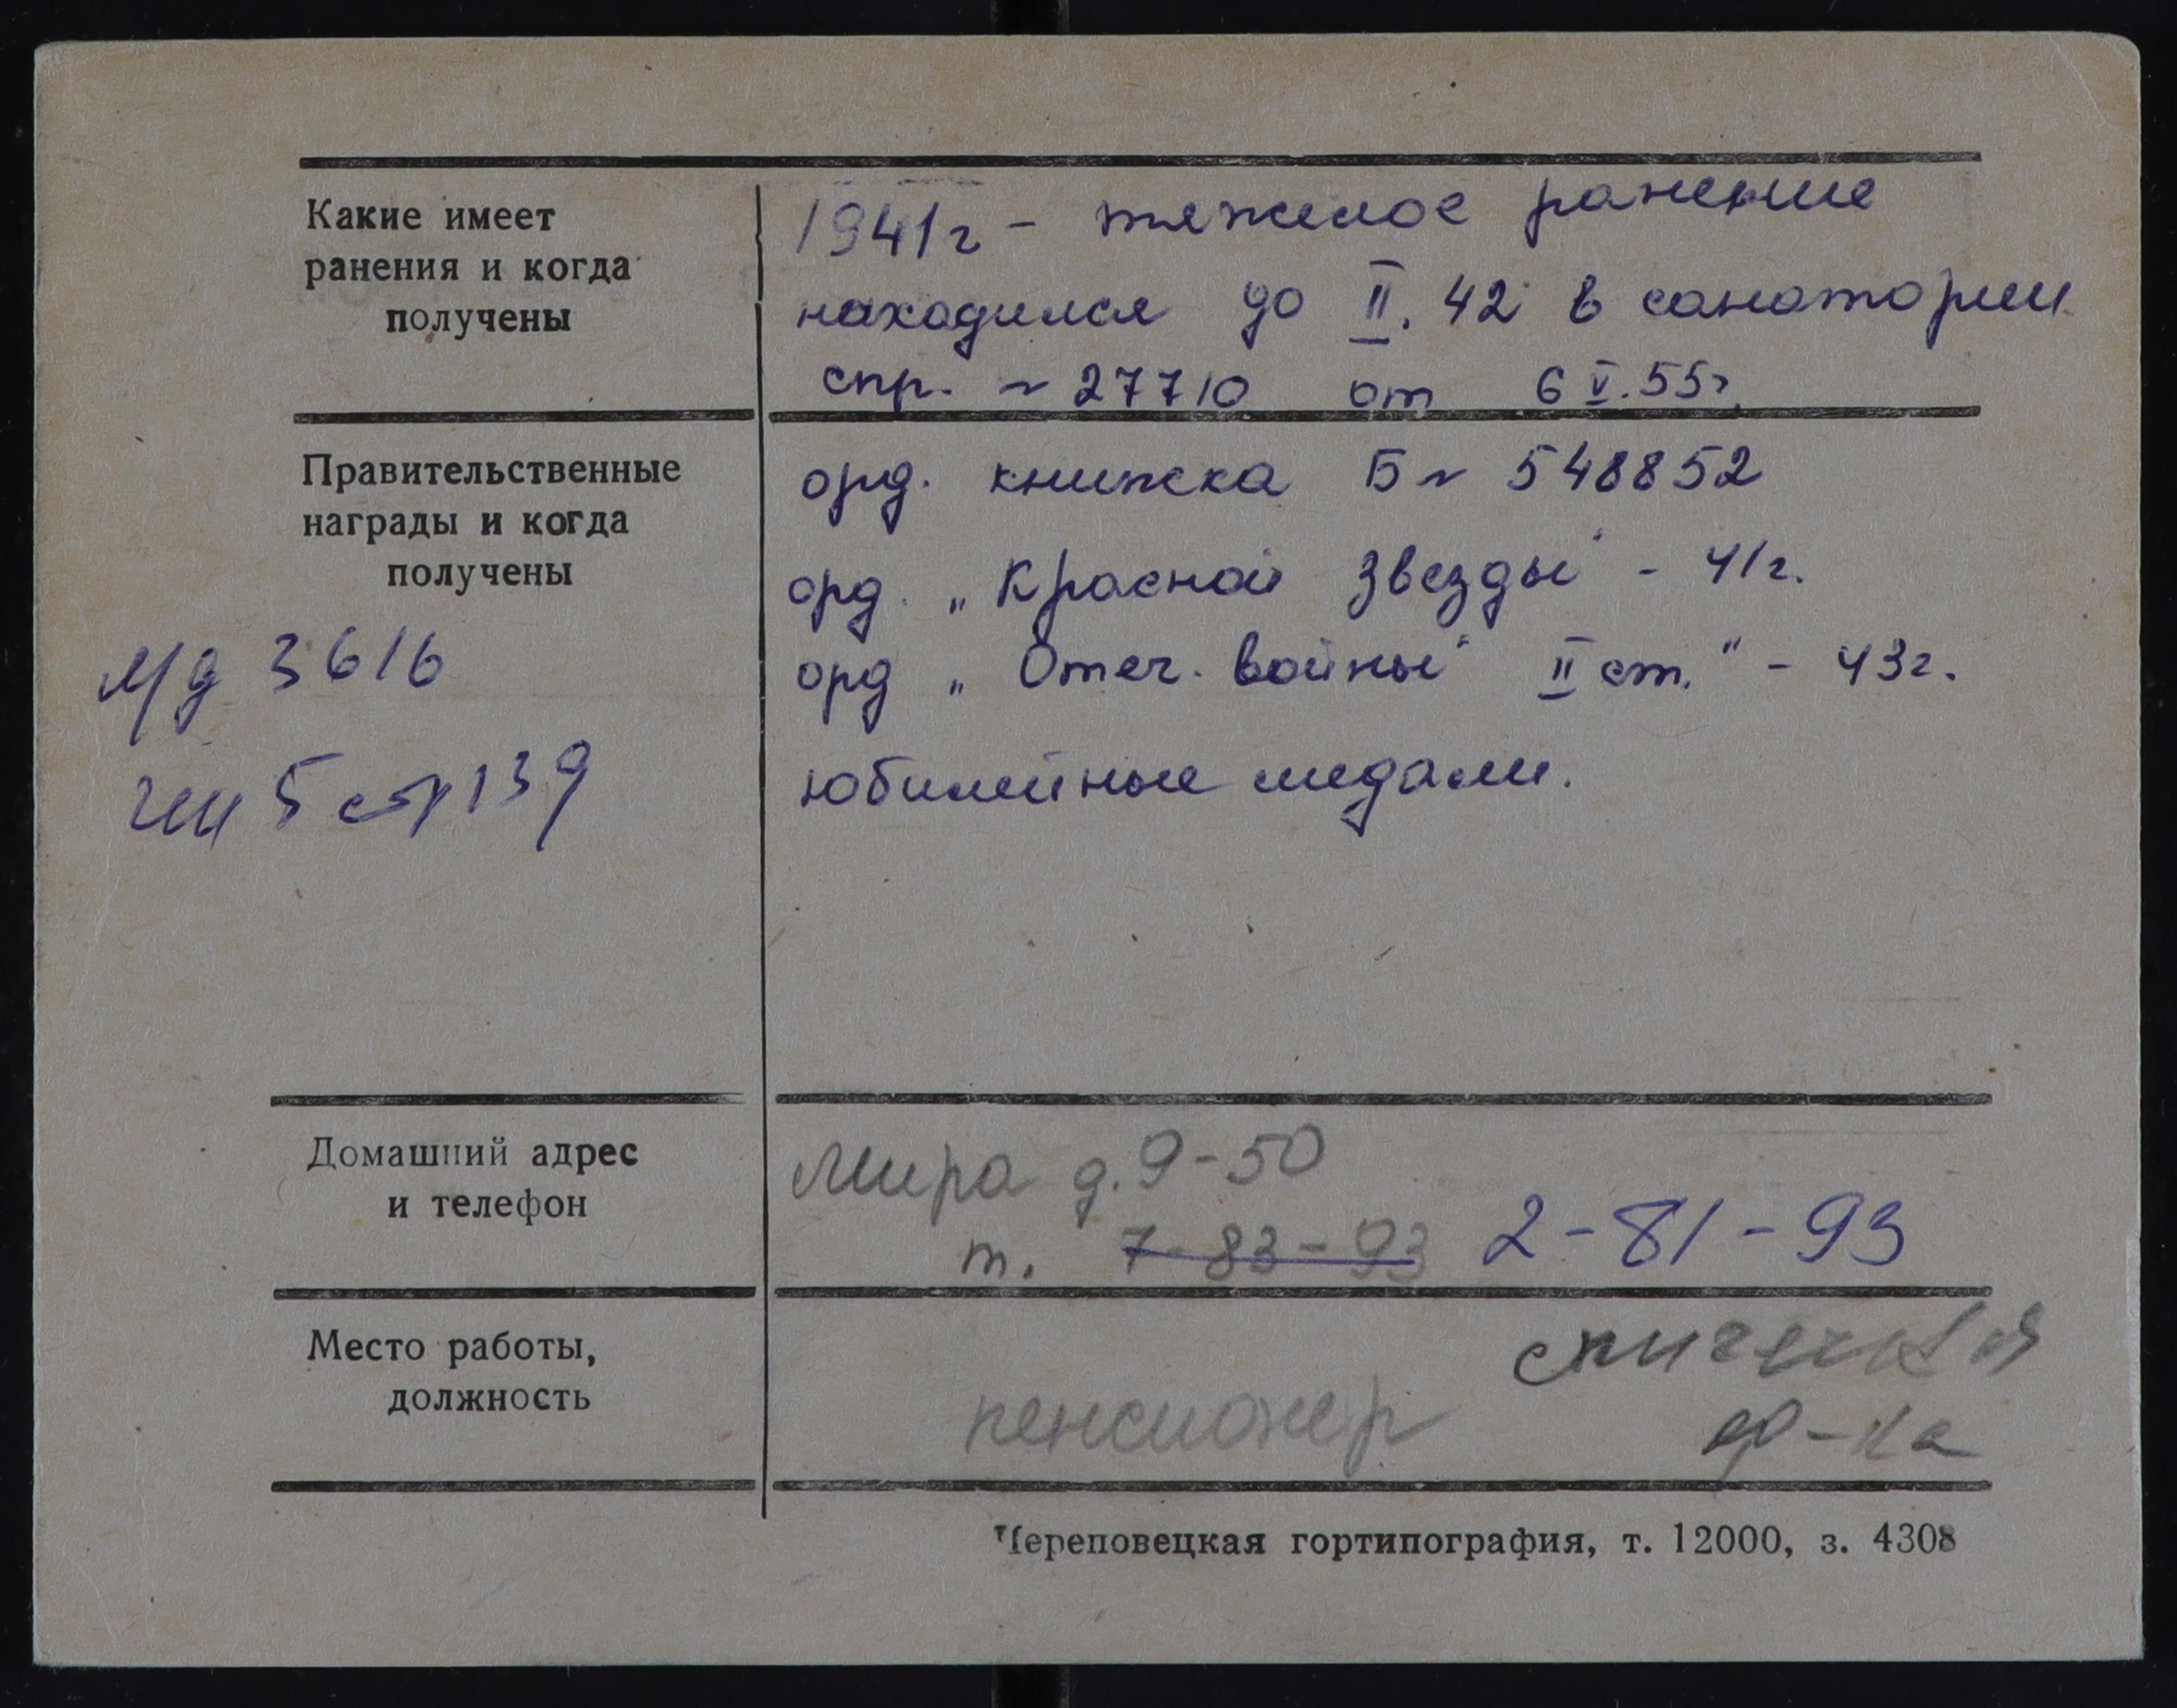 Какие имеет
ранения и когда
получены
1941г - тяжелое ранение
находился до II. 42 в санатории
спр. ~ 27710 от 6 V. 55г.
Правительственные
награды и когда
получены
орд. книжка Б ~ 548852
орд. „Красной Звезды" - 41г.
орд „Отеч. войны" II ст." - 43г.
юбилейные медали.
М/д 3616
5 стр 139
Домашний адрес
и телефон
Мира д. 9-50
т. 7-83-93 2-81-93
Место работы,
должность
спичечная
ф-ка
пенсионер
Череповецкая гортипография, т. 12000, з. 4308